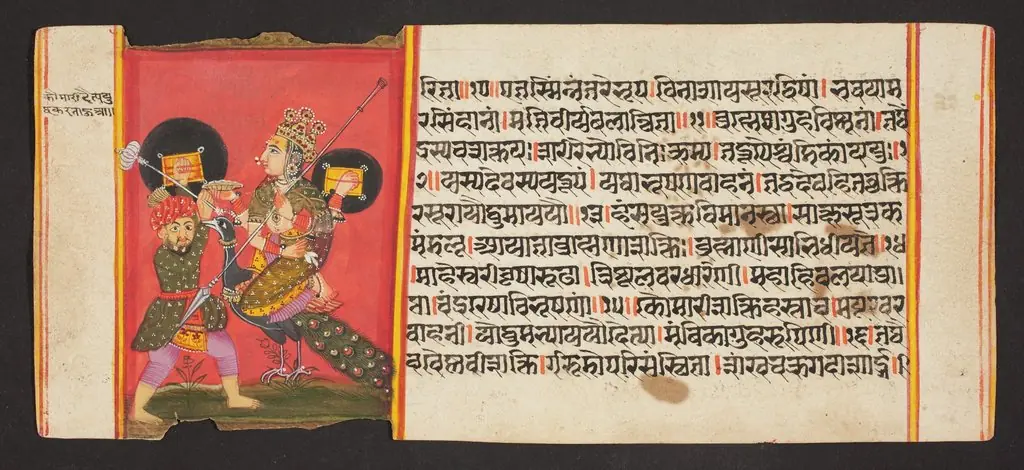 कौमारी दैत्ययु
द्धकरता
रिता॥१०॥एतस्मिन्नंतरे भूप।विनाशाय सुरद्विषां।भवायाम
रसिंहानां।मतिवीर्यबलान्विता॥११॥ब्रह्मेशगुहविष्णूनां।तथें
द्रस्य च शक्तयः।शरीरेभ्यो विनिःक्रम्य।तद्रूपैश्चंडिकां ययुः।१
२॥यस्य देवस्य यद्रूपं।यथाभूषणवाहनं।तद्वदेव हि तच्छक्ति
रसुरान्योद्धुमाययौ॥१३।हंसयुक्तविमानस्था।साक्षसूत्रक
मंडलुः।आयाता ब्रह्मणः शक्तिः।ब्रह्माणी साभिधीयते॥१४
।माहेश्वरी वृषारूढा।त्रिशूलवरधारिणी।महाहिवलया प्रा
प्ता।विभूषणा॥१५।कौमारी शक्तिहस्ता च।मयूरवर
वाहनी।योद्धुमभ्याययौ दैत्या।नंबिका गुहरूपिणी॥१६।तथै
व वैष्णवी शक्ति।र्गरुडोपरिसंस्थिता।शंखचक्रगदाशार्ङ्ग